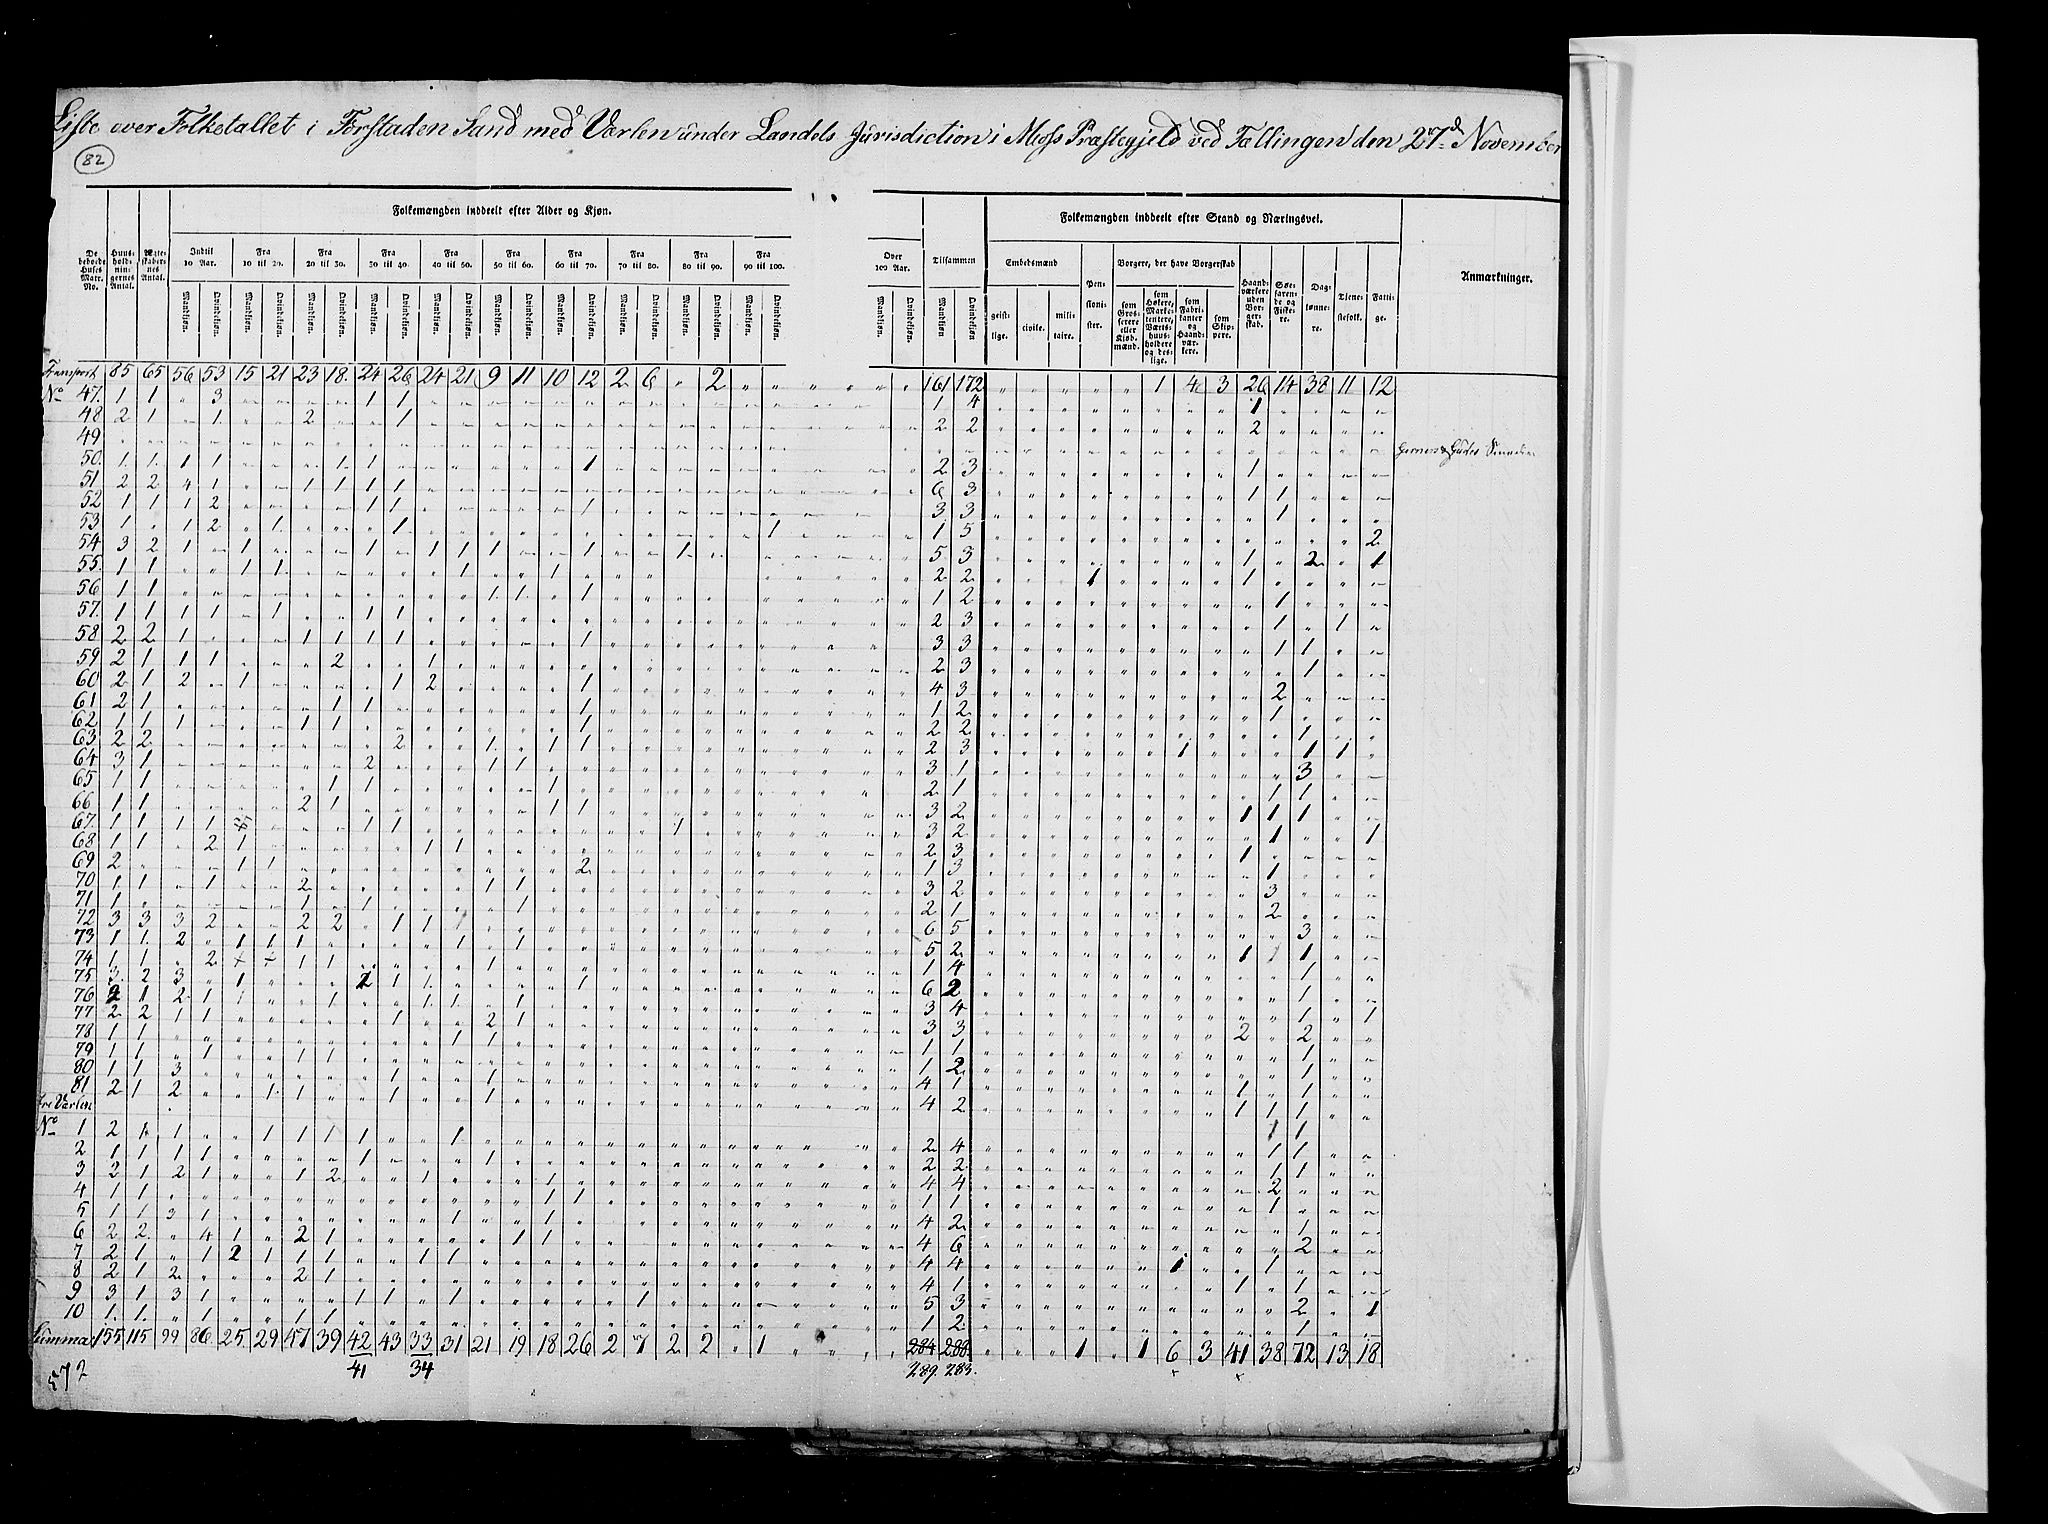 Liste over Folketallet i Forstaden Sand med Værlen under Landets Jurisdiction i Moss Præstegjeld ved Tællingen den 27de November
82
Folkemængden inddeelt efter Alder og Kjøn.
Folkemængden inddeelt efter Stand og Næringsvei.
De beboede Huses Matr. No.
Huusholdningernes Antal.
Ægteskabernes Antal.
Indtil 10 Aar.
Fra 10 til 20.
Fra 20 til 30.
Fra 30 til 40.
Fra 40 til 50.
Fra 50 til 60.
Fra 60 til 70.
Fra 70 til 80.
Fra 80 til 90.
Fra 90 til 100.
Over 100 Aar.
Tilsammen
Embedsmænd
Pensionister.
Borgere, der have Borgerskab
Haandværkere uden Borgerskab.
Søefarende og Fiskere.
Daglønnere.
Tjenestefolk.
Fattige.
Anmærkninger.
Mandkjøn. Qvindekjøn.
geistlige. civile. militaire.
som Grosserere eller Kjøbmænd.
som Høkere, Marketentere, Værtshuusholdere og deslige.
som Fabrikanter og Haandværkere.
som Skippere.
Transport 85 65 56 53 15 21 23 18 24 26 24 21 9 11 10 12 2 6 " 2 161 172 1 4 3 26 14 38 11 12
No 47. 1 1 " 3 1 1 1 4 1
48 2 1 " 1 2 1 2 2 2
49
50. 1 1 1 1 1 1 1 2 3 1
51 2 2 4 1 1 1 1 1 6 3 1 1
52 1 1 1 2 1 1 1 3 3 1
53 1 " 1 2 " 1 1 1 1 5 2
54 3 2 1 " 1 1 1 1 1 1 1 5 3 1 2 1
55. 1 1 1 1 1 1 2 2 1 1
56 1 1 1 1 1 1 2 1
57. 1 1 1 1 " 1 1 1 2 3 1 1
58 2 2 1 1 1 1 1 1 3 3 1 1
59 2 1 1 1 2 1 2 3 1
60 2 1 2 " 1 1 2 1 4 3 2
61 2 1 1 1 1 1 2 1
62 1 1 1 1 1 1 2 2 1
63 2 2 2 1 1 1 2 3 1 1 1
64 3 1 2 1 1 3 1 3
65 1 1 1 1 1 2 1 1 1
66 1 1 2 1 1 1 3 2 1 1 1
67. 1 1 1 1 1 1 1 3 2 1 1
68 1 1 " 2 1 1 1 2 3 1
69 2 1 1 2 1 3 1
70 1 1 " 1 2 1 1 3 2 3
71 1 1 1 1 2 1 2
72 3 3 3 2 2 2 " 1 1 1 6 5 3
73 1 1 2 " 1 1 1 1 1 5 2 1 1 1
74 1 1 " 2 1 1 1 1 4 1
75 3 2 3 " 1 2 1 1 1 6 2 1
76 2 1 2 1 1 1 1 1 1 3 4 1 1
77 2 2 1 1 1 2 1 3 3 2 2
78 1 1 1 1 1 1 1
79 1 1 " 1 1 1 1 2 1
80 1 1 3 1 1 4 1 1 1
81 2 1 2 1 1 1 1 4 2 1 1 1
No 1 2 1 1 1 1 1 1 1 2 4 1 1
2 1 1 1 1 1 1 2 2 1 1
3 2 1 2 1 1 2 1 1 4 4 1 1
4 1 1 1 1 1 1 2
5 1 1 3 1 1 1 4 2 1
6 2 2 " 4 1 " 2 1 1 1 4 6 1
7 2 1 " 1 2 1 1 1 1 1 4 4 2
8 2 1 2 2 1 4 1 1 1
9 3 1 3 1 1 1 " 1 1 5 3 1 1
10 1 1 " 1 1 1 1 2 2 1
Summa 155 115 99 86 25 29 47 39 42 43 33 31 21 19 18 26 2 7 2 2 " 1 284 288 1 " 1 6 3 41 38 72 13 18
572 41 34 289. 283.